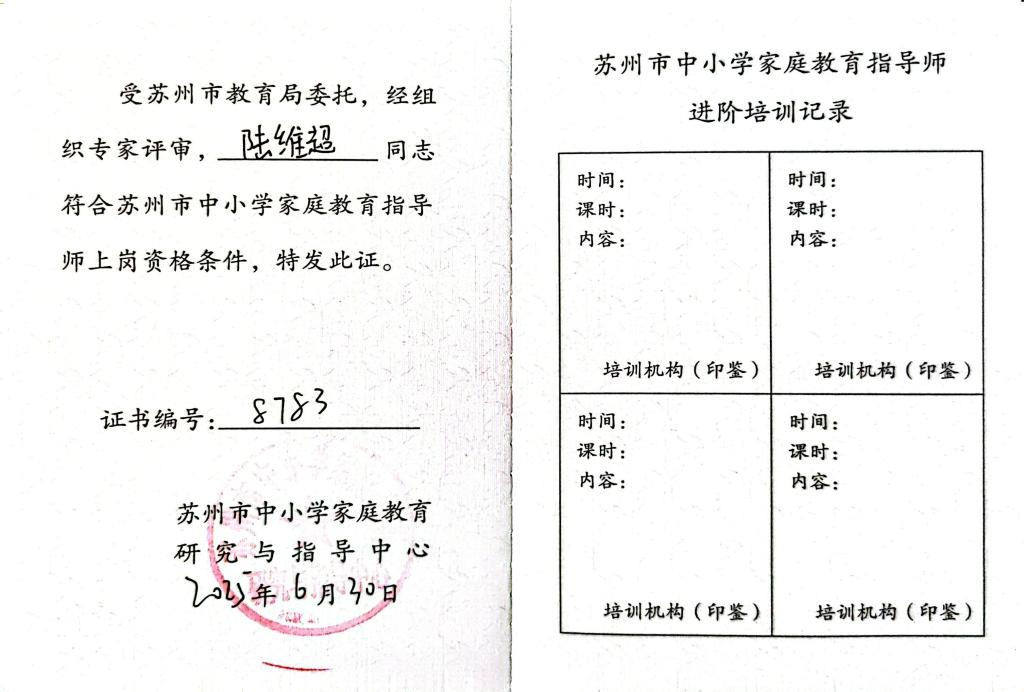 受苏州市教育局委托，经组
织专家评审，陆维超同志
符合苏州市中小学家庭教育指导
师上岗资格条件，特发此证。
证书编号：8783
苏州市中小学家庭教育
研究与指导中心
2025年6月30日
苏州市中小学家庭教育指导师
进阶培训记录
时间：
课时：
内容：
培训机构（印鉴）
时间：
课时：
内容：
培训机构（印鉴）
时间：
课时：
内容：
培训机构（印鉴）
时间：
课时：
内容：
培训机构（印鉴）